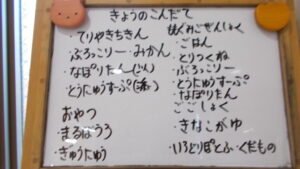 きょうのこんだて
・てりやきちきん
・ぶろっこりー・みかん
・なぽりたん
・とうにゅうすーぷ
おやつ
・まるぼうろ
・ぎゅうにゅう
はぐみごぜんしょく
・ごはん
・とりつくね
・ぶろっこりー
・とうにゅうすーぷ
・なぽりたん
ごごしょく
・きなこがゆ
・いろどりぽとふ・くだもの